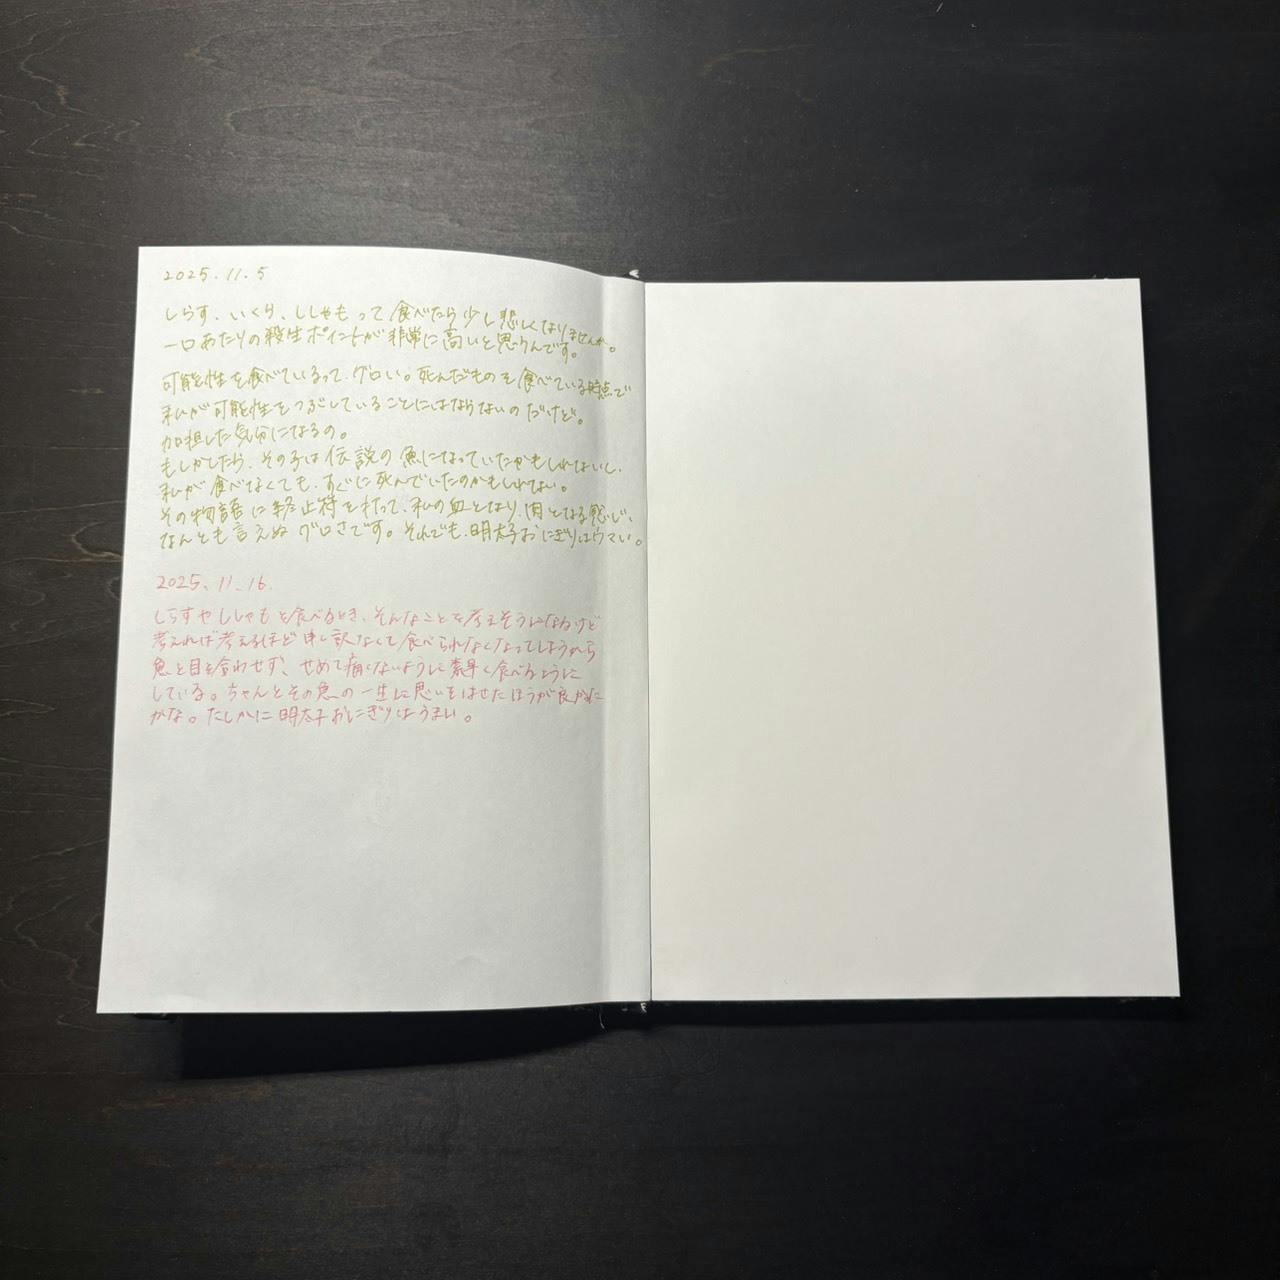 2025.11.5
しらす、いくら、ししゃもって食べたら少し悲しくなりませんか。
一口あたりの殺生ポイントが非常に高いと思うんです。
可能性を食べているって、グロい。死んだものを食べている時点で
私が可能性をつぶしていることにはならないのだけど。
加担した気分になるの。
もしかしたら、その子は伝説の魚になっていたかもしれないし、
私が食べなくても、すぐに死んでいたのかもしれない。
その物語に終止符を打って、私の血となり、肉となる感じ、
なんとも言えぬグロさです。それでも、明太子おにぎりはウマい。
2025.11.16.
しらすやししゃもを食べるとき、そんなことを考えそうになるけど
考えれば考えるほど申し訳なくて食べられなくなってしまうから
魚と目を合わせず、せめて痛くないように素早く食べるように
している。ちゃんとその魚の一生に思いをはせたほうが良かった
かな。たしかに明太子おにぎりはうまい。